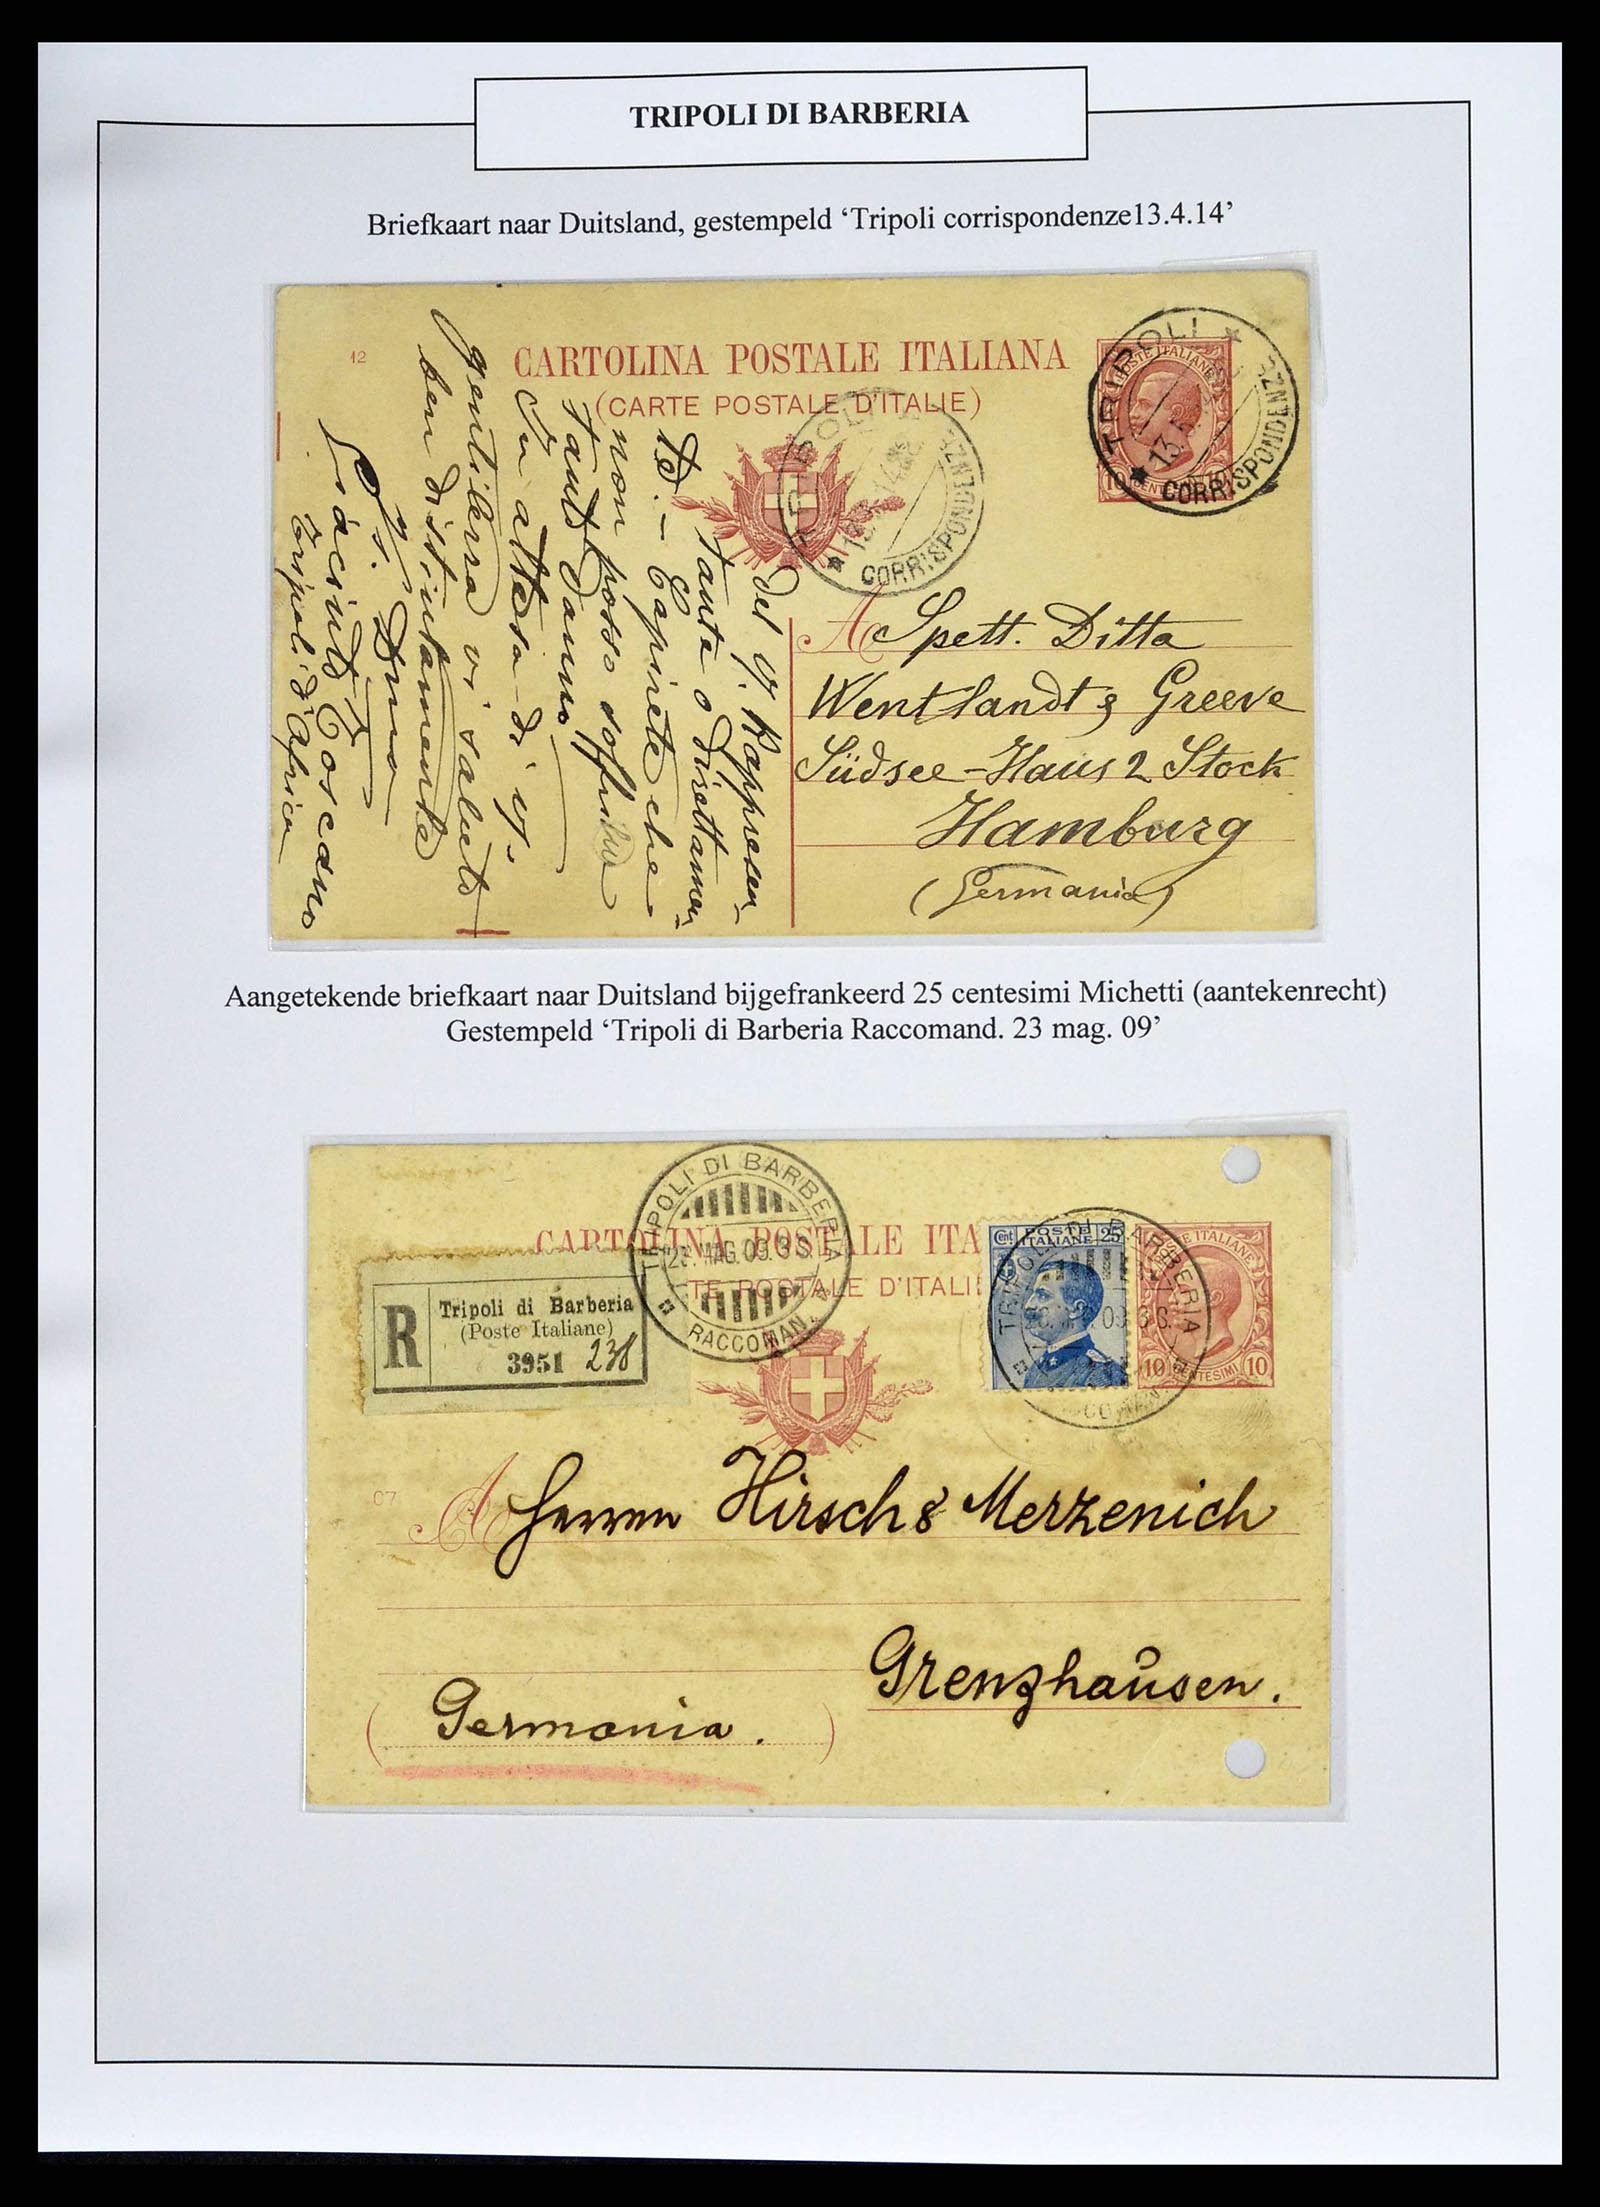 TRIPOLI DI BARBERIA
Briefkaart naar Duitsland, gestempeld ‘Tripoli corrispondenze13.4.14’
12
CARTOLINA POSTALE ITALIANA
(CARTE POSTALE D'ITALIE)
TRIPOLI
CORRISPONDENZE
POSTE ITALIANE
10
TRIPOLI
CORRISPONDENZE
del vs. Rappresen-
tante o direttamen-
te. - Capirete che
non posso soffrire
tanto danno
In attesa di vs.
gentilezza vi saluto
ben distintamente
Vs. Dmo
Giacinto Toscano
Tripoli d'Africa
A Spett. Ditta
Wentlandt & Greeve
Südsee-Haus 2 Stock
Hamburg
(Germania)
Aangetekende briefkaart naar Duitsland bijgefrankeerd 25 centesimi Michetti (aantekenrecht)
Gestempeld ‘Tripoli di Barberia Raccomand. 23 mag. 09’
TRIPOLI DI BARBERIA
23. MAG. 09. 3 S
RACCOMAN.
CARTOLINA POSTALE ITA
TE POSTALE D'ITALI
Cent POSTE ITALIANE 25
TRIPOLI DI BARBERIA
POSTE ITALIANE
10 CENTESIMI 10
R
Tripoli di Barberia
(Poste Italiane)
3951 238
07
A Herren Hirsch & Merzenich
Grenzhausen.
(Germania.)